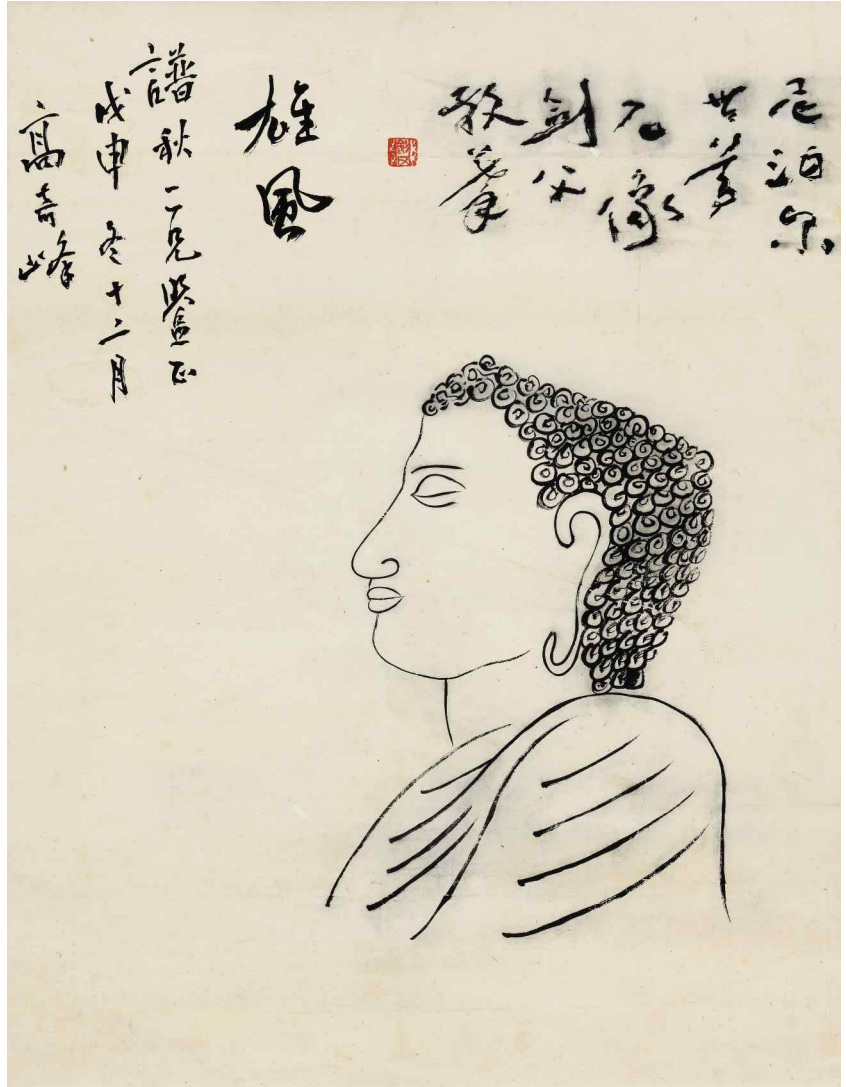 尼泊尔
世尊
石像
劍父
敬摹
雄風
譜秋二兄鑒正
戊申冬十二月
高奇峰